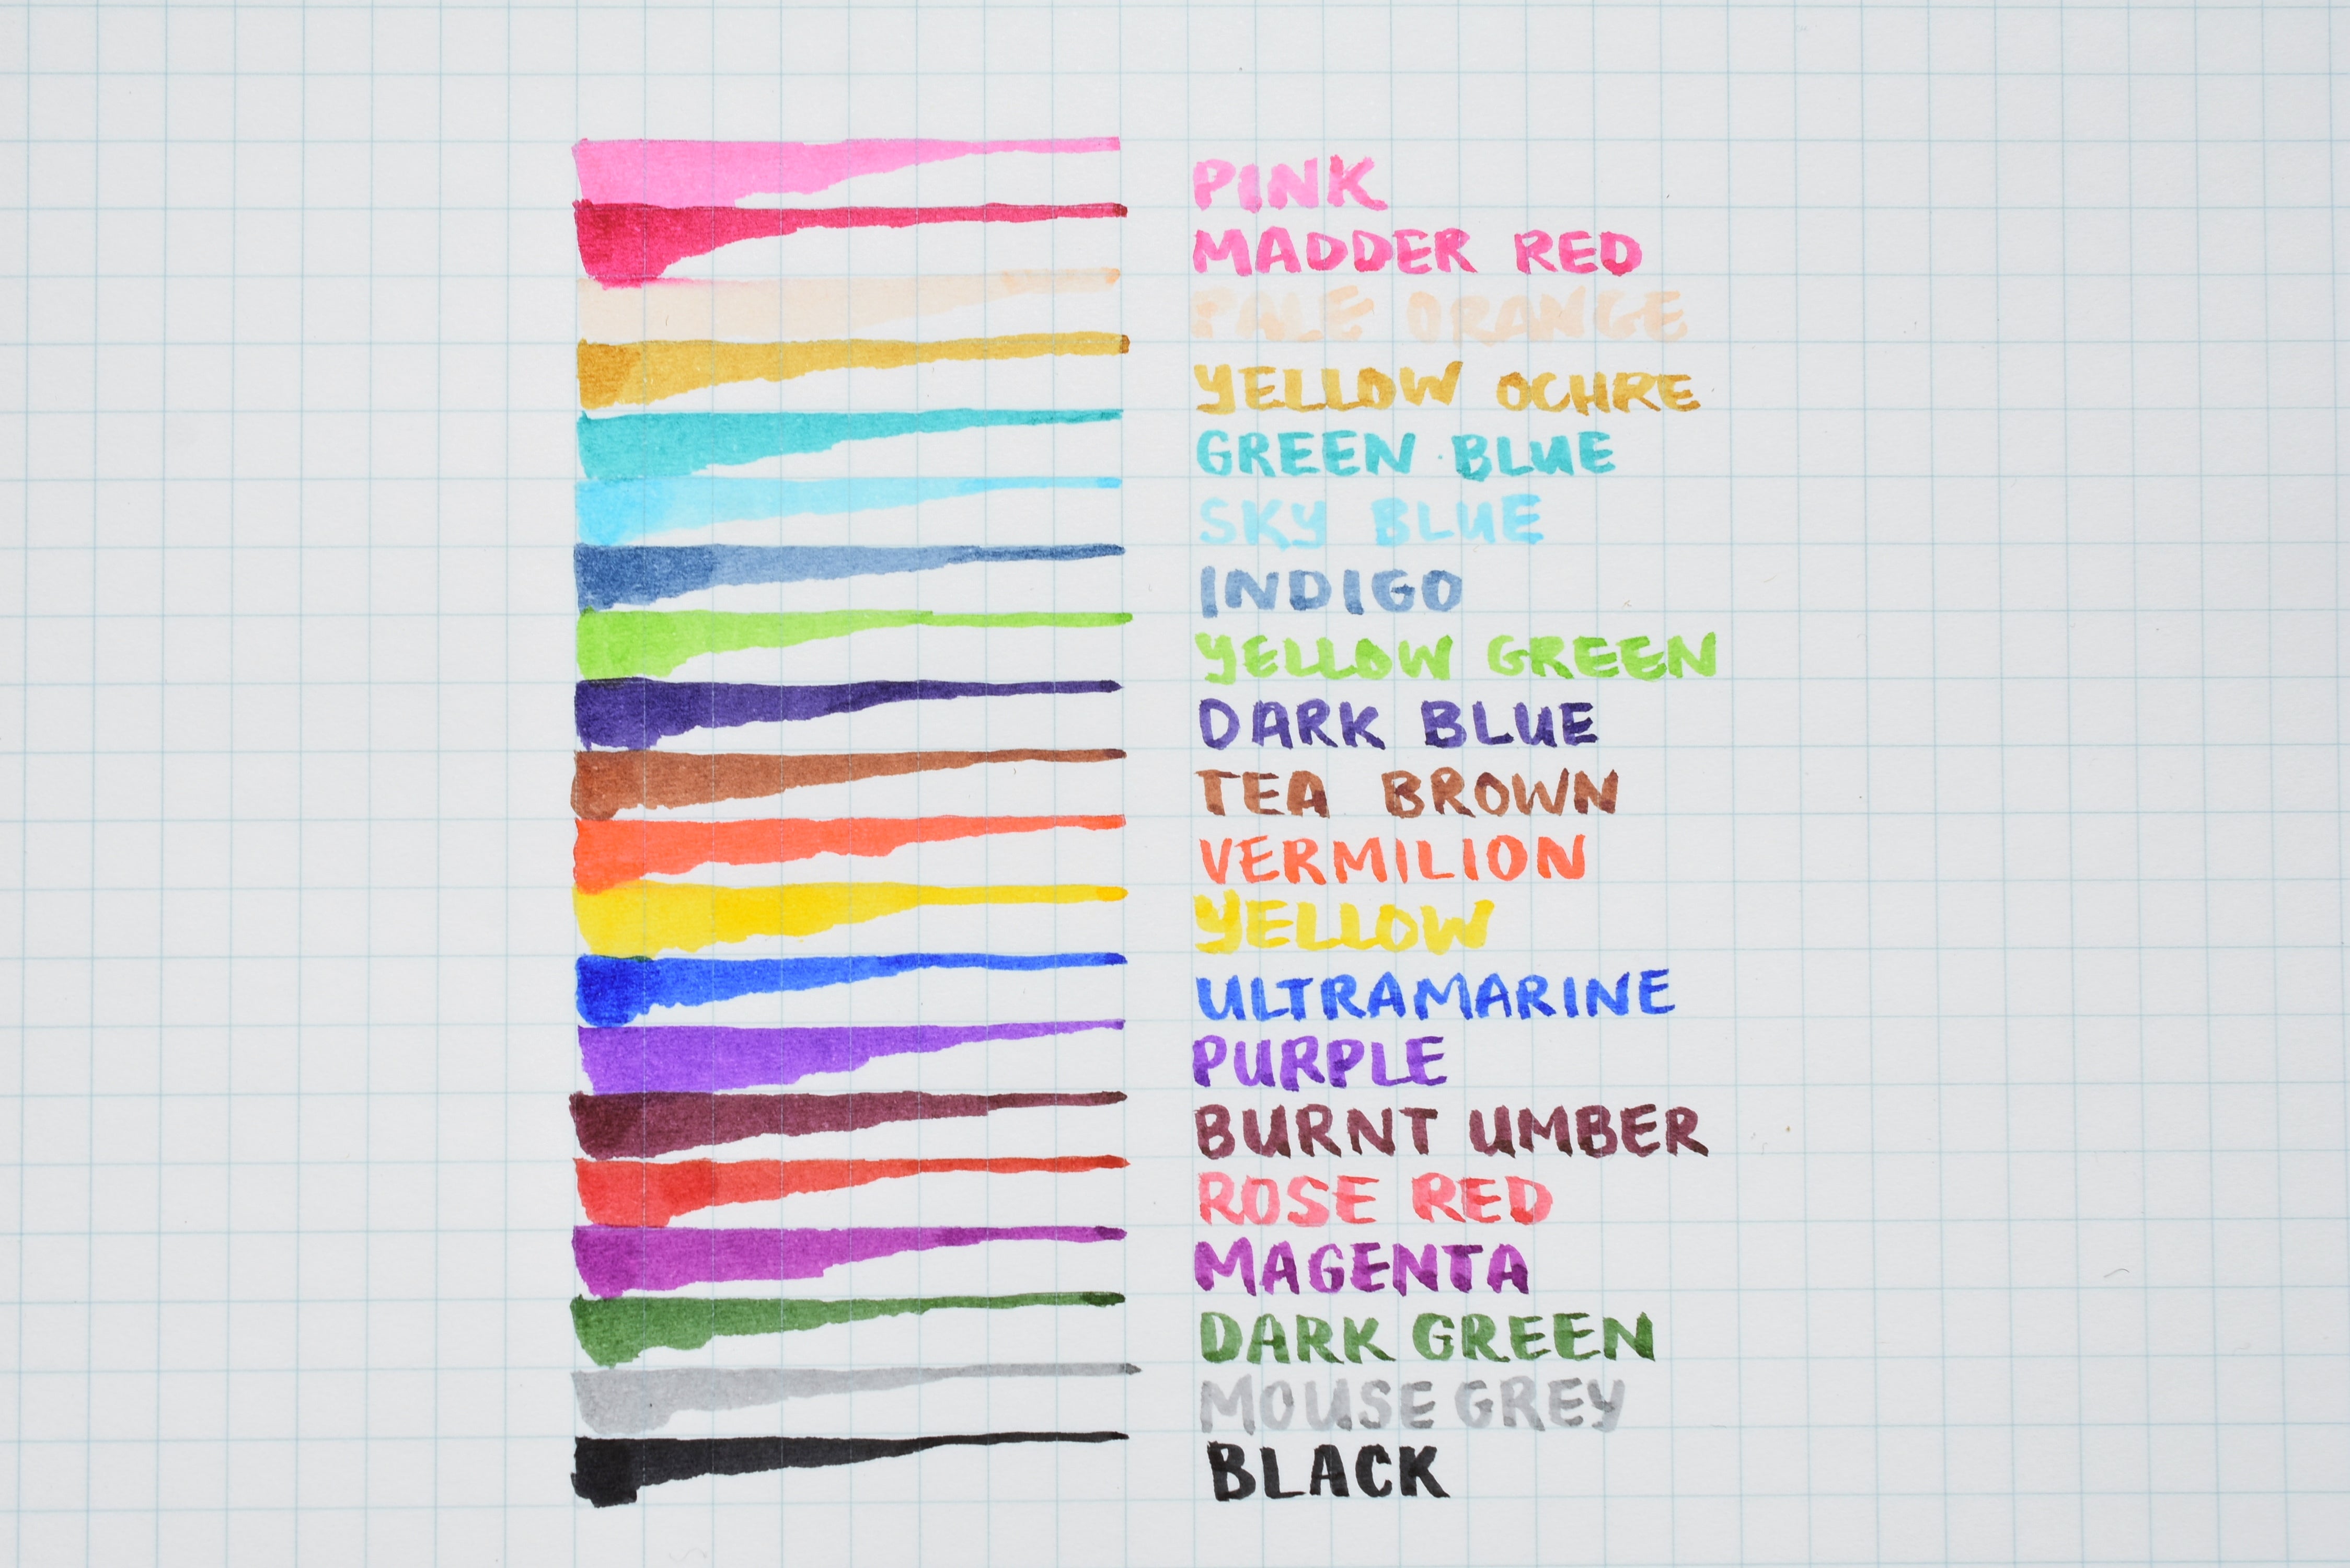 PINK
MADDER RED
PALE ORANGE
YELLOW OCHRE
GREEN BLUE
SKY BLUE
INDIGO
YELLOW GREEN
DARK BLUE
TEA BROWN
VERMILION
YELLOW
ULTRAMARINE
PURPLE
BURNT UMBER
ROSE RED
MAGENTA
DARK GREEN
MOUSE GREY
BLACK